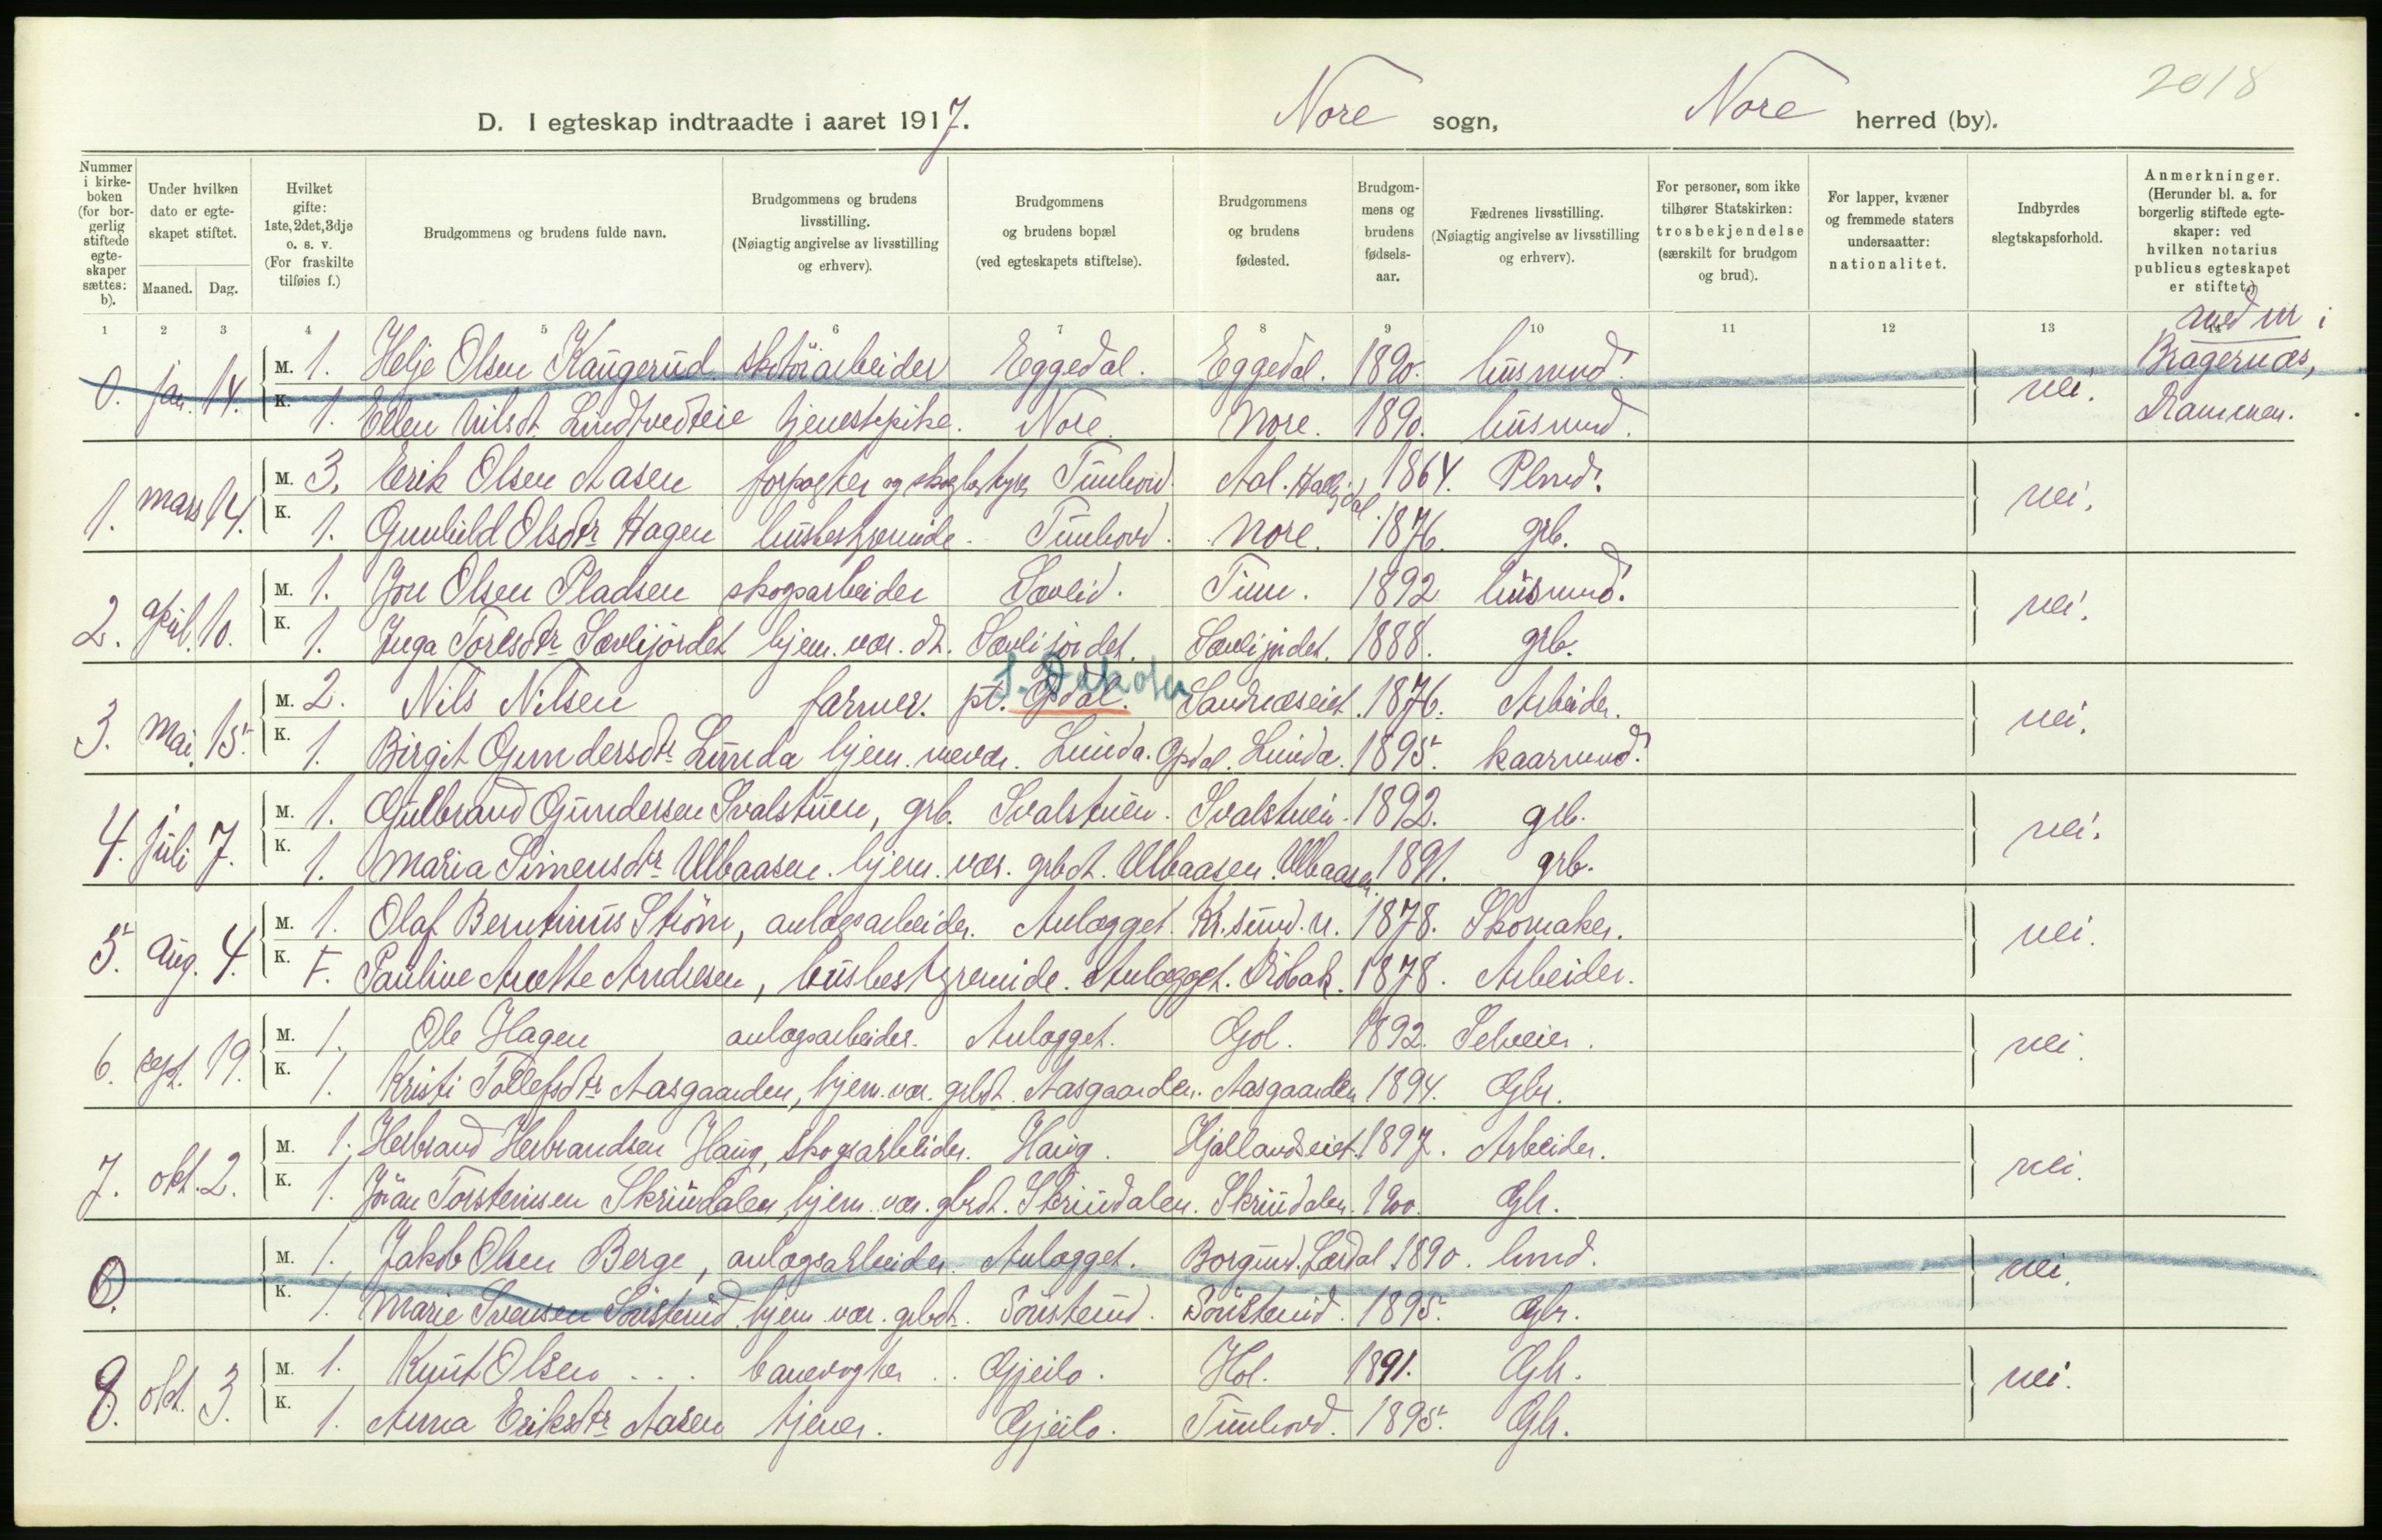 2018
D. I egteskap indtraadte i aaret 1917. Nore sogn, Nore herred (by).
Nummer i kirkeboken (for borgerlig stiftede egteskaper sættes: b).
Under hvilken dato er egteskapet stiftet.
Maaned. Dag.
Hvilket gifte: 1ste, 2det, 3dje o. s. v. (For fraskilte tilføies f.)
Brudgommens og brudens fulde navn.
Brudgommens og brudens livsstilling. (Nøiagtig angivelse av livsstilling og erhverv).
Brudgommens og brudens bopæl (ved egteskapets stiftelse).
Brudgommens og brudens fødested.
Brudgommens og brudens fødselsaar.
Fædrenes livsstilling. (Nøiagtig angivelse av livsstilling og erhverv).
For personer, som ikke tilhører Statskirken: trosbekjendelse (særskilt for brudgom og brud).
For lapper, kvæner og fremmede staters undersaatter: nationalitet.
Indbyrdes slegtskapsforhold.
Anmerkninger. (Herunder bl. a. for borgerlig stiftede egteskaper: ved hvilken notarius publicus egteskapet er stiftet.)
1 2 3 4 5 6 7 8 9 10 11 12 13 14
0. jan. 14. M. 1. Helje Olsen Kaugerud. skotöiarbeider Eggedal. Eggedal. 1890. husmnd. nei. Bragernæs,
K. 1. Ellen Nilsdt. Lindtvedteie tjenestepike. Nore. Nore. 1890. husmnd. Drammen.
1. mars 14. M. 3. Erik Olsen Aasen forpagter og skogbestyr. Tunhovd. Aal. Hallingdal 1864. Plmd. nei.
K. 1. Gunhild Olsdtr Hagen husbestyrerinde. Tunhovd. Nore. 1876. grb.
2. April. 10. M. 1. Jon Olsen Pladsen skogsarbeider Sævlid. Tinn. 1892 husmnd. nei.
K. 1. Inga Toresdtr Sævlijördet hjem. vær. dt. Sævlijordet. Sævlijordet. 1888. grb.
3. Mai. 15. M. 2. Nils Nilsen farmer. pt. Opdal. S. Dakota Sandnæseiet. 1876. Arbeider. nei.
K. 1. Birgit Gundersdtr Lunda hjem. værer. Lunda. Opdal. Lunda. 1895. kaarmnd.
4. Juli 7. M. 1. Gulbrand Gundersen Svalstuen, grb. Svalstuen. Svalstuen. 1892. grb. nei.
K. 1. Maria Simensdtr Ulbaasen. hjem. vær. grbdt. Ulbaasen. Ulbaasen. 1891. grb.
5. Aug. 4. M. 1. Olaf Berntinus Ström, anlægsarbeider. Anlægget. Kr.sund. N. 1878. Skomaker. nei.
K. F. Pauline Anette Andresen, husbestyrerinde. Anlægget. Dröbak. 1878. Arbeider.
6. sept. 19. M. 1. Ole Hagen anlægsarbeider. Anlægget. Gol. 1892. Selveier. nei.
K. 1. Kristi Tollefsdtr Aasgaarden, hjem. vær. grbdt. Aasgaarden. Aasgaarden 1894. Gbr.
7. okt. 2. M. 1. Herbrand Herbrandsen Haug, skogsarbeider. Haug. Hjallandseiet. 1897. Arbeider. nei.
K. 1. Jöran Torsteinsen Skrindalen hjem. vær. gbrdt. Skrindalen. Skrindalen. 1900. Gbr.
0. M. 1. Jakob Olsen Berge, anlægsarbeider. Anlægget. Borgund. Lærdal 1890. lmnd. nei.
K. 1. Marie Svensen Sönsterud. hjem. vær. grbdt. Sönsterud. Sönsterud. 1895. Gbr.
8. okt. 3. M. 1. Knut Olsen banevogter Gjeilo. Hol. 1891. Gbr. nei.
K. 1. Anna Eriksdtr Aasen tjener. Gjeilo. Tunhovd. 1895. Gbr.